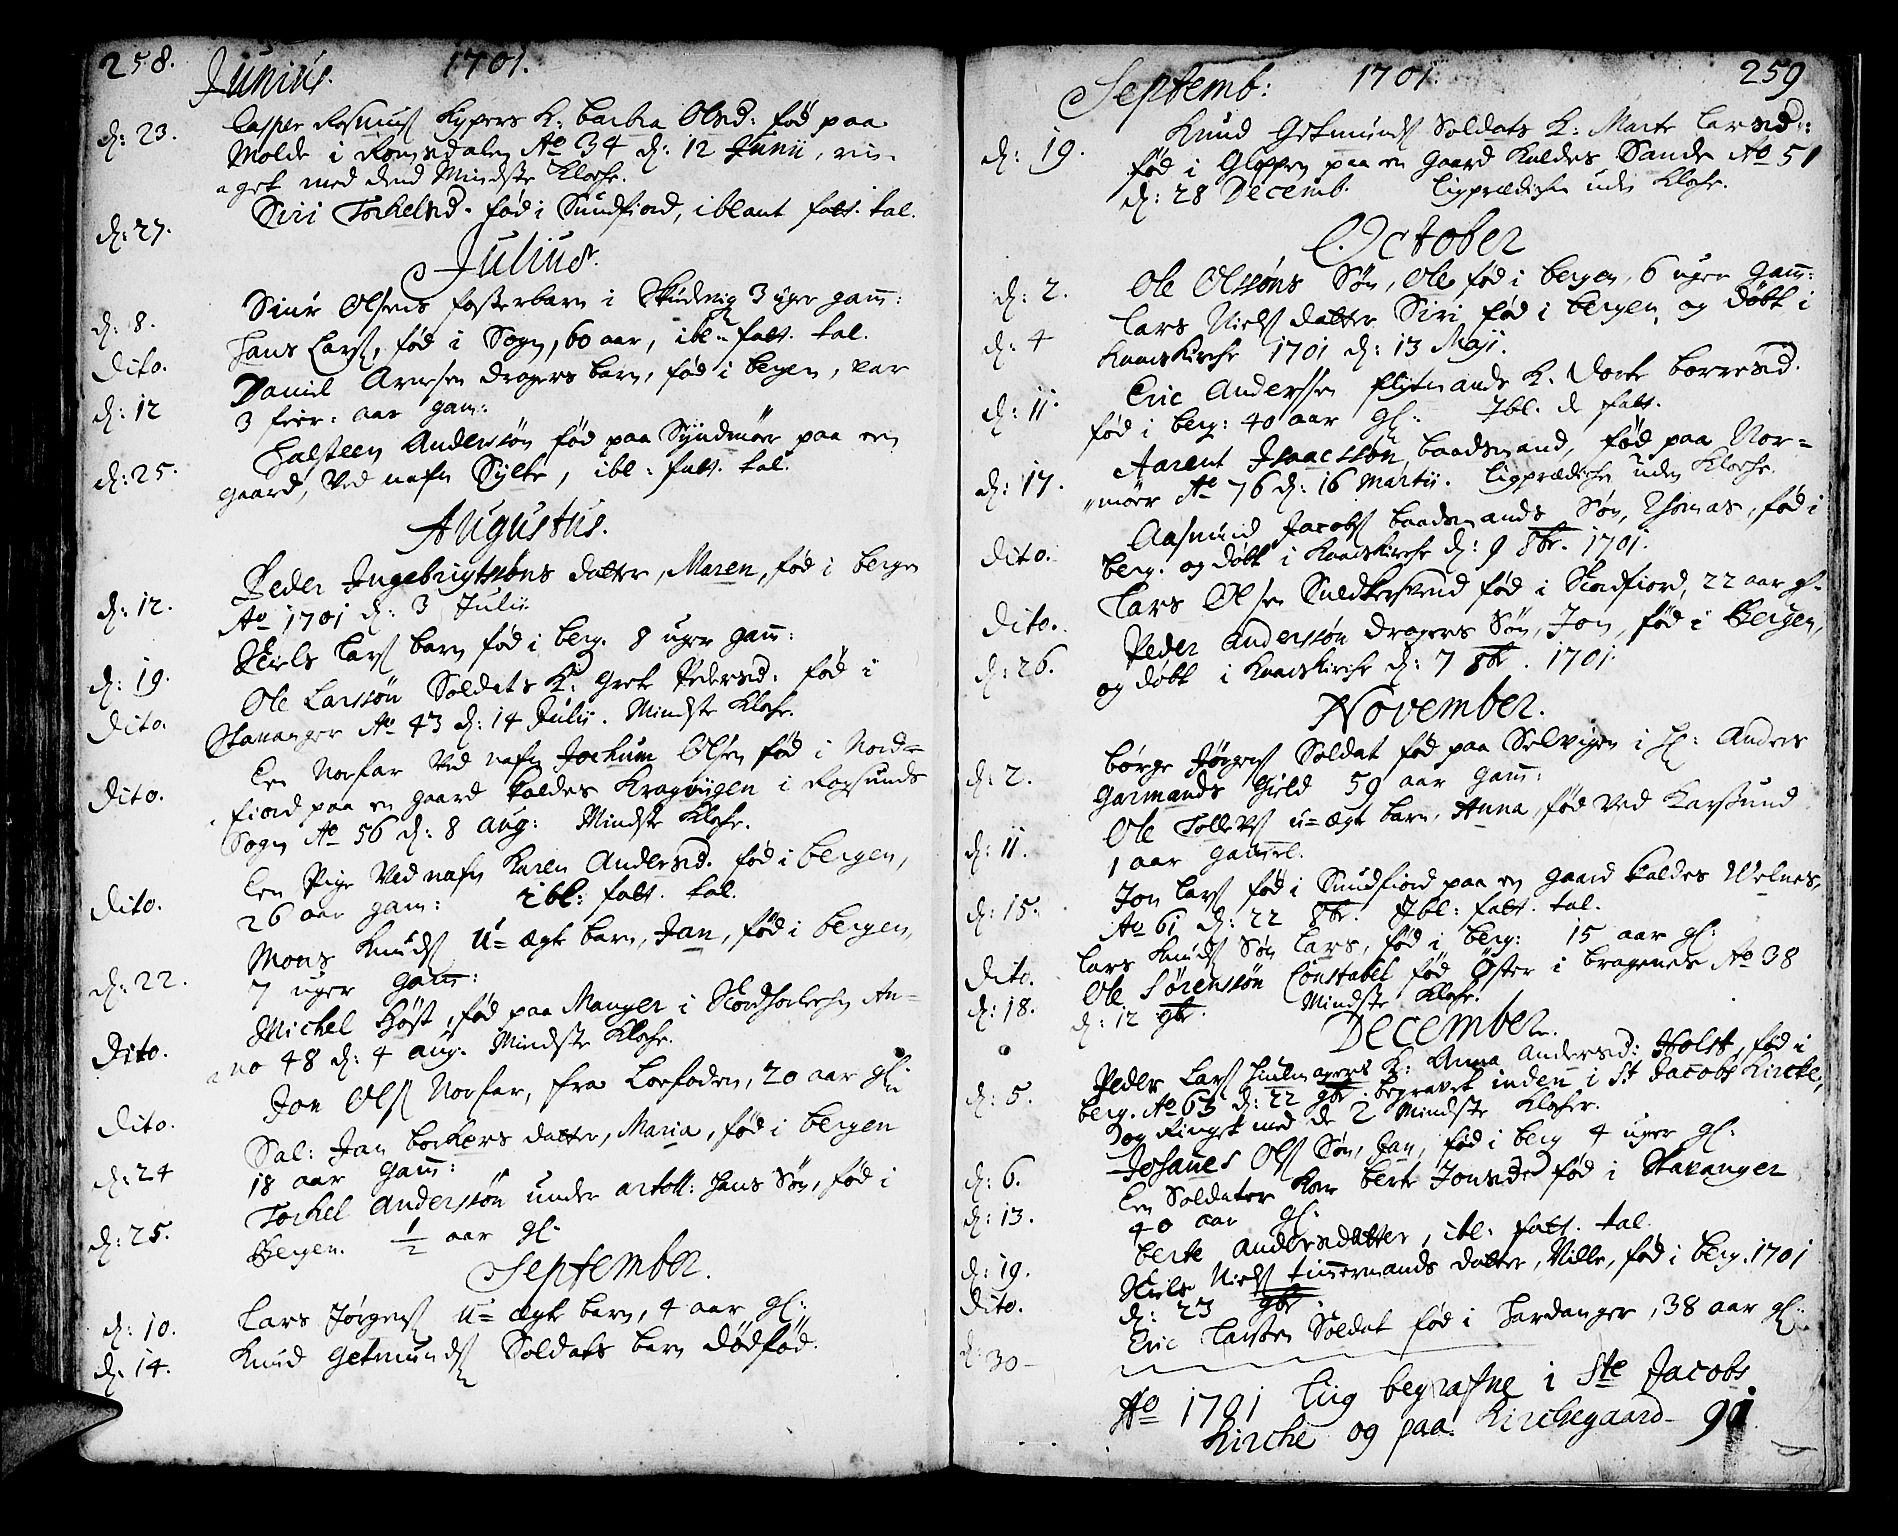 258. Junius. 1701.
d: 23. Casper Rasmus Kypers K: Barbra Olsd: fød paa
Molde i Romsdalen Ao 34 d: 12 Junii, rin-
get med dend Mindste Kloche.
d: 27. Siri Torkelsd. fød i Sundfiord, iblant fatt. tal.
Julius.
d: 8. Siur Olsens fosterbarn i Skudevig 3 uger gam:
Dito. Hans Lars, fød i Sogn, 60 aar, ibl: fatt. tal.
d: 12 Daniel Arnesen dragers barn, fød i Bergen, var
3 fier: aar gam:
d: 25. Halsteen Anderssøn fød paa Syndmøer paa een
gaard, ved nafn Sylte, ibl: fatt. tal.
Augustus.
d: 12. Peder Ingebrigtsøns datter, Maren, fød i Bergen
Ao 1701 d: 3 Julii
d: 19. Niels Lars barn fød i Berg. 8 uger gam:
Dito. Ole Larssøn Soldats K: Grete Pedersd: fød i
Stavanger Ao 43 d: 14 Julii. Mindste Kloche.
Dito. Een Norfar ved nafn Jochum Olsen fød i Nord=
fiord paa en gaard kaldes Kragvigen i
Sogn Ao 56 d: 8 aug: Mindste Kloche.
Dito. Een Pige ved nafn Karen Andersd. fød i Bergen,
26 aar gam: ibl: fatt. tal.
d: 22. Mons Knuds U=ægte barn, Jan, fød i Bergen,
7 uger gam:
Dito. Michel Høst, fød paa Manger i Nordhorlehn An=
no 48 d: 4 aug. Mindste Kloche.
Dito. Jon Ols Norfar, fra Loefoden, 20 aar gl:
d: 24 Sal: Jan Borkers datter, Maria, fød i Bergen
18 aar gam:
d: 25. Torkel Anderssøn under artoll: Hans Søn, fød i
Bergen. 1/2 aar gl:
September.
d: 10. Lars Jørgens U=ægte barn, 4 aar gl:
d: 14. Knud Getmunds Soldats barn dødfød.
Septemb: 1701. 259
d: 19. Knud Getmunds Soldats K: Marte Larsd:
fød i Gloppen paa en gaard kaldes Sande Ao 51
d: 28 Decemb. Ligprædichen uden Kloche.
October
d: 2. Ole Olssøns Søn, Ole, fød i Bergen, 6 uger gam:
d: 4 Lars Niels datter Siri fød i Bergen, og døbt i
KaarsKirche 1701 d: 13 Maji.
d: 11. Eric Anderssen K. Dorte Borresd.
fød i Berg: 40 aar gl: Ibl. de fatt.
d: 17. Aarent Isaacssøn, baadsmand, fød paa Nor=
møer Ao 76 d: 16 Martii. Ligprædichen uden Kloche.
Dito. Aasmund Jacobs baadsmands Søn, Thomas, fød i
Berg. og døbt i KaarsKirche d: 9 8br. 1701.
Dito. Lars Olsen fød i Nordfiord, 22 aar gl.
d: 26. Peder Anderssøn dragers Søn, Jon, fød i Bergen,
og døbt i KaarsKirche d: 7 8br. 1701.
November.
d: 2. Børge Jørgens Soldat fød paa Selvigen i H: Anders
Garmands Gield 59 aar gam:
d: 11. Ole Tollevs u=ægte barn, Anna, fød ved Karssund
1 aar gammel.
d: 15. Jon Lars fød i Sundfiord paa en gaard kaldes Welnes,
Ao 61 d: 22 8br. Ibl: fatt. tal.
Dito. Lars Knuds Søn Lars, fød i Berg: 15 aar gl:
d: 18. Ole Sørenssøn Constabel fød Øster i Bragenes Ao 38
d: 12 9br. Mindste Kloche.
December.
d: 5. Peder Lars K: Anna Andersd: Holst, fød i
Berg. Ao 63 d: 22 9br. begravet inden i St Jacobs Kircke,
og Ringet med de 2 Mindste Klocher.
d: 6. Johanes Ols Søn, Jan, fød i Berg 4 uger gl:
d: 13. Een Soldater Kone Berte Jonsd fød i Stavanger
40 aar gl:
d: 19. Berte Andersdatter, ibl: fatt. tal.
Dito. Niels Niels timermands datter, Mille, fød i Berg. 1701
d: 23 9br.
d: 30 Eric Larssen Soldat fød i Hardanger, 38 aar gl:
Ao 1701 Liig begrafne i Ste Jacobs
Kirche og paa Kirchegaard 91